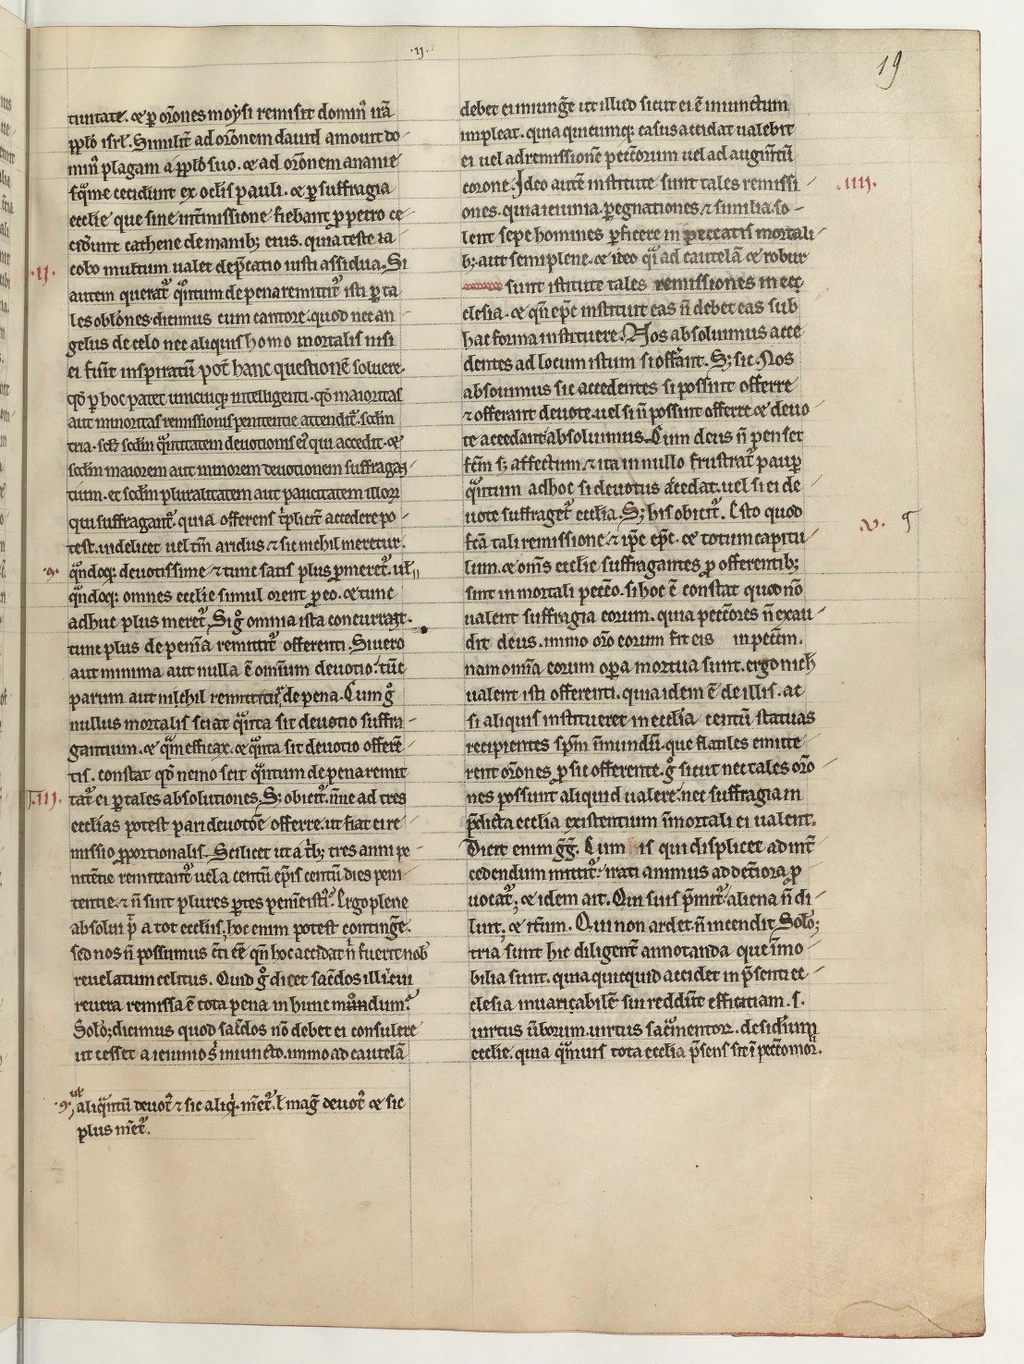 .ij.
19
tunitate. & p̱ or̃ones moysi remisit domin᷒ irã
pp̱lo isrl̃. Similit̃ ad or̃onem dauid amouit do-
min᷒ plagam a pp̱lo suo. & ad or̃onem ananie
sq̃me ceciderunt ex oclis pauli. & p̱ suffragia
ecclie que sine int̃missione fiebant p̱ petro ce-
ciderunt cathene de manib; eius. quia teste ia
cobo multum ualet dep̃catio iusti assidua. Si
.ij.
autem querat᷒ q̃ntum de pena remittit᷒ isti p̱ ta
les obl̃ones dicimus cum cantore. quod nec an
gelus de celo nec aliquis homo mortalis nisi
ei fuerit inspiratũ pot̃ hanc questionẽ soluere.
qđ p̱ hoc patet unicuiq; intelligenti. qđ maioritas
aut minoritas remissionis penitentie attendit᷒ scd̃m
tria. scil; scd̃m q̃ntitatem deuotionis ei᷒ qui accedit. &
scd̃m maiorem aut minorem deuotionem suffragan-
tium. et scd̃m pluralitatem aut paucitatem illor̃
qui suffragant᷒. quia offerens t̃plicit̃ accedere po-
test. uidelicet uel tm̃ aridus & sic nichil meretur.
q̃ndoq; deuotissime & tunc satis plus p̱meret᷒. ul̃
q̃ndoq; omnes ecclie simul orent p̱ eo. & tunc
adhuc plus meret᷒. Si g̊ omnia ista concurrant.
tunc plus de penĩa remittit᷒ offerenti. Si uero
aut minima aut nulla ẽ omnium deuotio. tũc
parum aut nichil remittitur de pena. Cum g̊
nullus mortalis sciat q̃nta sit deuotio suffra-
gantium. & q̃m efficax. & q̃nta sit deuotio offerẽ-
tis. constat qđ nemo scit q̃ntum de pena remit
.iij.
tat᷒ ei p̱ tales absolutiones. S; obicit᷒. ñne ad tres
ecclias potest pari deuotõe offerre. ut fiat ei re-
missio p̱portionalis. Scilicet ut a t̃b; tres anni pe-
nitẽtie remittant᷒ uel a centũ ep̃is centũ dies peni-
tentie. & ñ sint plures p̱tes penĩe isti᷒. Ergo plene
absolui p̃t a tot eccliis. hoc enim potest contingẽ.
sed nos ñ possumus c̃ti ẽe q̃n hoc accidat ñ fuerit nob᷒
reuelatum celitus. Quid g̊ dicet sac̃dos illi cui
reuera remissa ẽ tota pena in hunc mũndum?
Solo; dicimus quod sac̃dos nõ debet ei consulere
ut cesset a ieiunio s̃ iniuncto. immo ad cautelã
ul̃ aliq̃ntũ deuot᷒ & sic aliq̃. m̃et᷒. l̃ mag᷒ deuot᷒ & sic
plus m̃et᷒.
debet ei iniungẽ ut illud sicut ei ẽ iniunctum
impleat. quia quicumq; casus accidat ualebit
ei uel ad remissionẽ pecc̃orum uel ad augm̃tũ
.iiij.
corone. Ideo autẽ institute sunt tales remissi
ones. quia ieiunia. p̱egrinationes, & similia so-
lent sepe homines p̱ficere in peccatis mortali
b; aut semiplene. & ideo q̃si ad cautelã & robur
sunt istitute tales remissiones in ecc
clesia. & q̃n ep̃c instituit eas ñ debet eas sub
hac forma instituere. Nos absoluimus acce
dentes ad locum istum si offerãt. S; sic. Nos
absoluimus sic accedentes si possunt offerre
& offerant deuote. uel si ñ possunt offerre & deuo
te accedant absoluimus. Cum deus ñ penset
fc̃m s; affectum. & ita in nullo frustrat᷒ paup̱
q̃ntum adhoc si deuotus accedat. uel si ei de
uote suffraget᷒ ecclia. S; his obicit᷒. Esto quod
.v. 5
fc̃a tali remissione & ip̃e ep̃c. & totum capitu
lum. & om̃s ecclie suffragantes p̱ offerentib;
sint in mortali pecc̃o. si hoc ẽ constat quod nõ
ualent suffragia eorum. quia pecc̃ores ñ exau
dit deus. immo or̃o eorum fit eis in pecc̃m.
nam omĩa eorum op̱a mortua sunt. ergo nich
ualent isti offerenti. quia idem ẽ de illis. ac
si aliquis institueret in ecclia centũ statuas
recipientes sp̃m ĩmundũ. que flatiles emitte
rent or̃ones p̱ sic offerente. g̊ sicut nec tales or̃o
nes possunt aliquid ualere. nec suffragia in
p̃dicta ecclia existentium ĩ mortali ei ualent.
Dicit enim g̃g᷒. Cum is qui displicet ad int̃
cedendum mittit᷒. irati animus ad det̃iora p̱
uocat᷒. & idem ait. Qui suis p̃mit᷒ aliena ñ di
luit. & it̃um. Qui non ardet ñ incendit. Solo;
tria sunt hic diligent̃ annotanda que ĩmo-
bilia sunt. quia quicquid accidet in p̃senti ec
clesia inuariabilẽ sui reddũt efficatiam. s.
uirtus ũborum. uirtus sac̃mentor̃. desiderium
ecclie. quia q̃muis tota ecclia p̃sens sit ĩ pecc̃o mor̃.